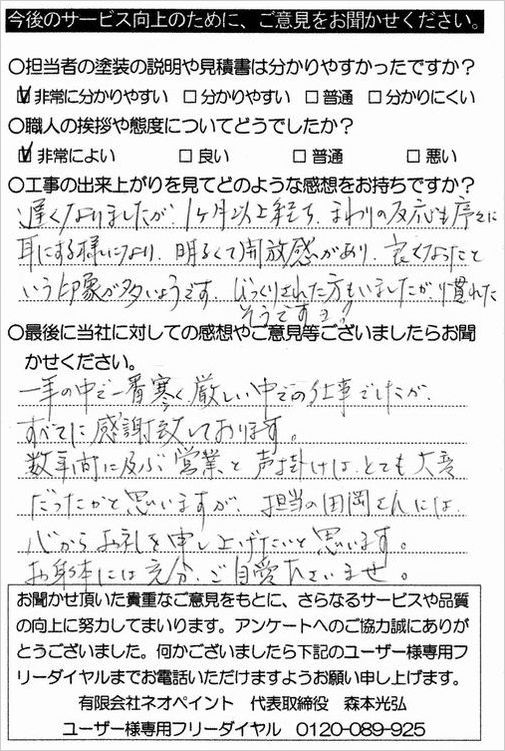 今後のサービス向上のために、ご意見をお聞かせください。
○担当者の塗装の説明や見積書は分かりやすかったですか？
☑非常に分かりやすい □分かりやすい □普通 □分かりにくい
○職人の挨拶や態度についてどうでしたか？
☑非常によい □良い □普通 □悪い
○工事の出来上がりを見てどのような感想をお持ちですか？
遅くなりましたが、1ヶ月以上経ち、まわりの反応も序々に
耳にする様になり、明るくて開放感があり、良くなったと
いう印象が多いようです。びっくりされた方もいましたが、慣れた
そうです
○最後に当社に対しての感想やご意見等ございましたらお聞
かせください。
一年の中で一番寒く、厳しい中での仕事でしたが、
すべてに感謝致しております。
数年前に及ぶ営業と声掛けは、とても大変
だったかと思いますが、担当の田岡さんには、
心からお礼を申し上げたいと思います。
お身体には充分、ご自愛下さいませ。
お聞かせ頂いた貴重なご意見をもとに、さらなるサービスや品質
の向上に努力してまいります。アンケートへのご協力誠にありが
とうございました。何かございましたら下記のユーザー様専用フ
リーダイヤルまでお電話いただけますようお願い申し上げます。
有限会社ネオペイント 代表取締役 森本光弘
ユーザー様専用フリーダイヤル 0120-089-925